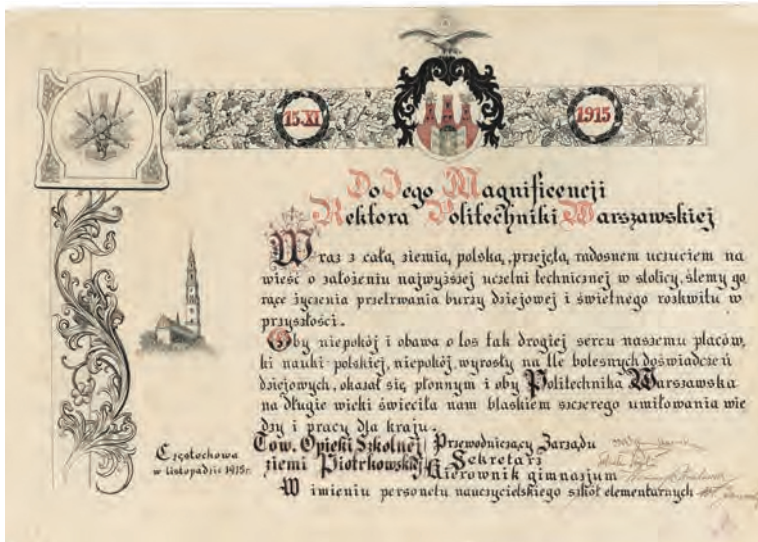 15.XI
1915
Do Jego Magnificencji
Rektora Politechniki Warszawskiej
Wraz z całą ziemią polską, przejętą radosnem uczuciem na
wieść o założeniu najwyższej uczelni technicznej w stolicy, ślemy go
rące życzenia przetrwania burzy dziejowej i świetnego rozkwitu w
przyszłości.
Oby niepokój i obawa o los tak drogiej sercu naszemu placów,
ki nauki polskiej, niepokój, wyrosły na tle bolesnych doświadczeń
dziejowych, okazał się płonnym i oby Politechnika Warszawska
na długie wieki świeciła nam blaskiem szczerego umiłowania wie
dzy i pracy dla kraju.
Częstochowa
w listopadzie 1915r.
Tow. Opieki Szkolnej
ziemi Piotrkowskiej
Przewodniczący Zarządu
Sekretarz
Kierownik gimnazjum
W imieniu personelu nauczycielskiego szkół elementarnych